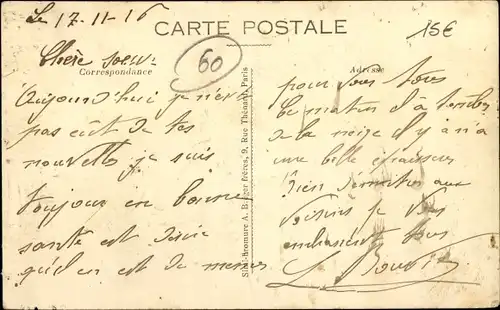 Le 17-11-16
CARTE POSTALE
15€
60
Chère soeur
Correspondance
Adresse
Aujourd'hui je n'ai
pas eût de tes
nouvelles je suis
toujour en bonne
santé est
qu'il en est de meme
Simili-bromure A. Breger frères, 9, Rue Thénard, Paris
pour vous tous
le matin il à tomber
de la neige il y an a
une belle épaisseur
Rien aux
je vous
embrassent tous
L